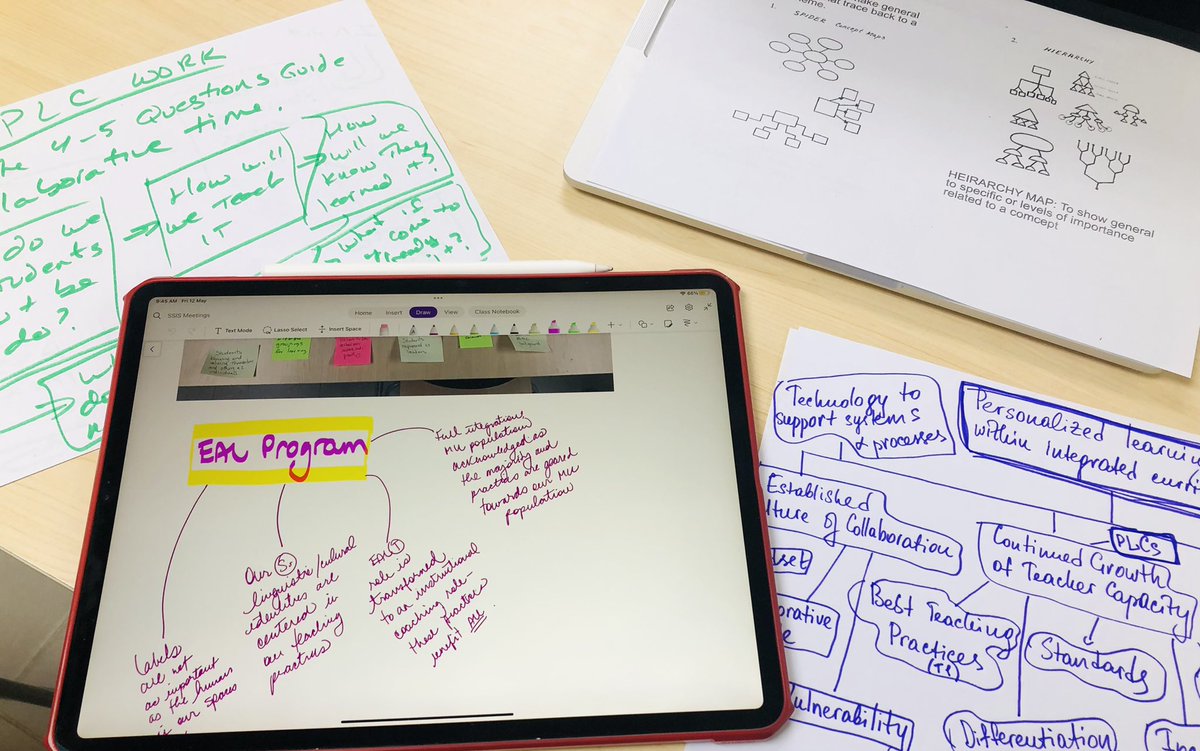 PLC WORK
he 4-5 Questions Guide
laborative time.
do we
udents
t be
do?
How will
we teach
it
How
will we
know they
learned it?
What is
come to
it?
make general
that trace back to a
1.
SPIDER Concept Maps
2.
HIERARCHY
HEIRARCHY MAP: To show general
to specific or levels of importance
related to a comcept
9:45 AM Fri 12 May
66%
SSIS Meetings
Home Insert Draw View Class Notebook
Text Mode Lasso Select Insert Space
Students
for learning
Students
EAL Program
Full integrations
MLL population
acknowledged as
the majority and
practices are geared
towards our MLL
population
Our Ss
linguistic/cultural
identities are
centered in
our teaching
practices
EAL T
role is
transformed
to an instructional
coaching role-
these practice
benefit ALL
Labels
are not
as important
as the human
our spaces
Technology to
support systems
& processes
Personalized learnin
within integrated curri
Established
lture of Collaboration
PLCs
Continued Growth
of Teacher Capacity
set
orative
Best Teaching
Practices
Standards
ulnerability
Differentiation